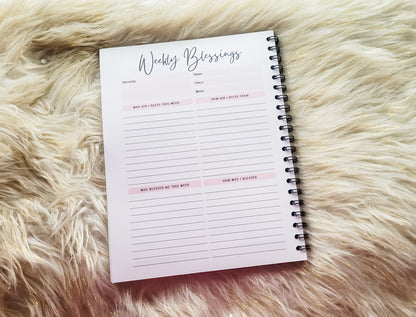 Weekly Blessings
Place:
WHO DID I BLESS THIS WEEK
HOW DID I BLESS THEM
WHO BLESSED ME THIS WEEK
HOW WAS I BLESSED